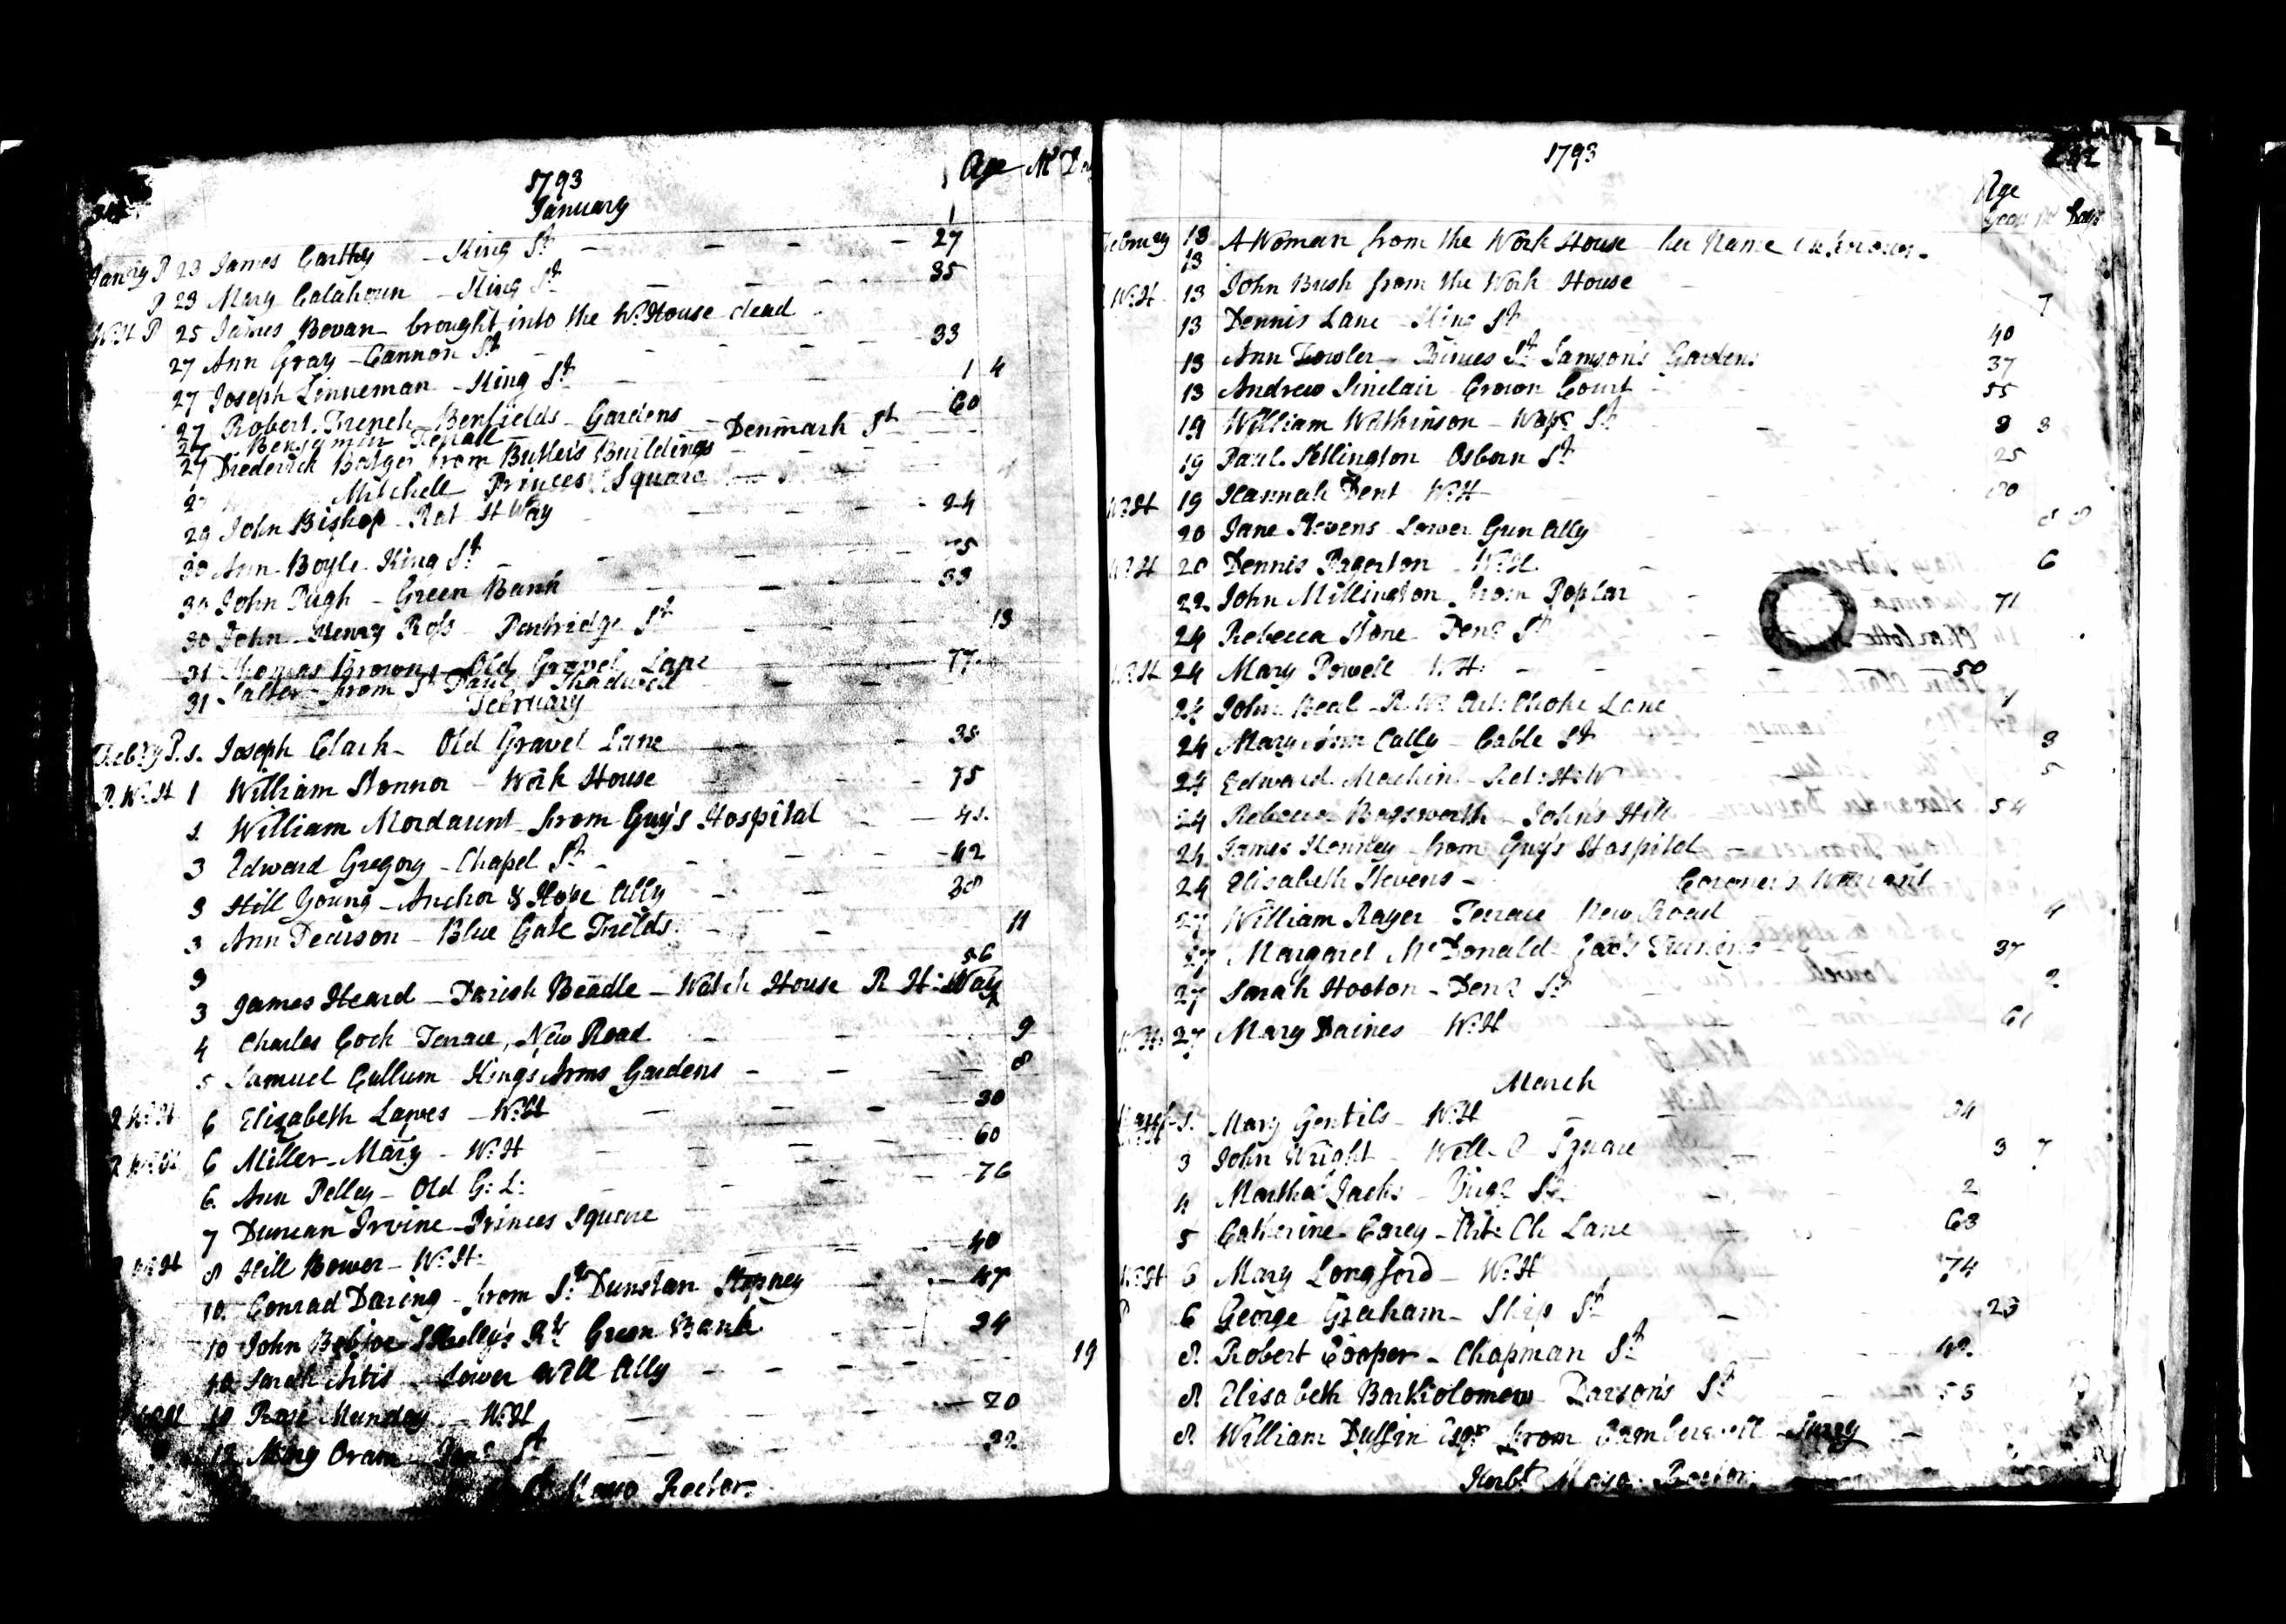 1793
January
Age M Day
Janry P 23 James Carthy - King St 27
P 23 Mary Calahoun - King St 35
W:H P 25 James Bevan - brought into the W:House dead
27 Ann Gray - Cannon St 33
27 Joseph Linneman - King St 1 4
27 Robert French Benfields Gardens 60
27 Benjamin Denmark St
27 Diederick Bolger from Butler's Buildings
27 Mitchell Princes Square
29 John Bishop Rat H Way 24
30 Ann Boyle King St 75
30 John Pugh - Green Bank 33
30 John Henry Ross Penbridge St 13
31 Thomas Brown Old Gravel Lane 77
31 Salter from St Paul Shadwell
February
Feb:ry P. 1. Joseph Clark - Old Gravel Lane 35
P. W:H 1 William Stonnor - Work House 75
1 William Mordaunt from Guy's Hospital 41
3 Edward Gregory - Chapel St 42
3 Hill Young - Anchor & Hope Ally 30
3 Ann Pearson - Blue Gate Fields 11
3
3 James Heard - Parish Beadle - Watch House R H: Way 56
4 Charles Cock Terrace, New Road 9
5 Samuel Cullum Kings Arms Gardens 8
P W:H 6 Elizabeth Lawes - W:H 30
P W:H 6 Miller - Mary - W:H 60
6 Ann Pelley - Old G: L: 76
7 Duncan Irvine - Princes Square
P W:H 8 Hill Bower - W:H: 40
10 Conrad Daring - from St Dunstan Stepney 47
10 John Green Bank 24
10 Sarah Artis Lower Well Ally 19
W:H 10 Rose Munday - W:H 20
12 Mary Oram St
Mayo Rector
1793
Age
Years M Days
February 13 A Woman from the Work House her Name unknown
13
W:H 13 John Bush from the Work House
13 Dennis Lane King St 7
13 Ann Fowler Princes St Samson's Gardens 40
13 Andrew Sinclair Crown Court 37
19 William Watkinson - Wapg St 55
19 Paul Osborn St
W:H 19 Hannah Dent W:H
20 Jane Stevens Lower Gun Ally
W:H 20 Dennis Pagerton W:H 6
22 John Millington from Poplar
24 Rebecca Stone Peng St 71
W:H 24 Mary Powell W:H: 50
24 John Beal Arti: Choke Lane
24 Mary Ann Cally - Cable St 3
24 Edward Machin - Rat: H: W 5
24 Rebecca Bagsworth John's Hill 54
24 James from Guy's Hospital
24 Elisabeth Stevens - Coroner's Warrant
27 William Rayer Terrace New Road 4
27 Margaret McDonald 37
27 Sarah Hooton - Peng St 2
W:H: 27 Mary Daines W:H 61
March
March 1. Mary Gentils - W:H 34
3 John Wright - Well C Square 3 7
4 Martha Jacks - Virga St 2
5 Catherine Carey - Arti: Ch Lane 63
W:H 6 Mary Longford - W:H 74
P 6 George Graham - Ship St 23
8 Robert Cooper - Chapman St
8 Elisabeth Bartholomew Parson's St 55
8 William Duffin Esqr from Camberwell Surry
Herbt Mayo Rector